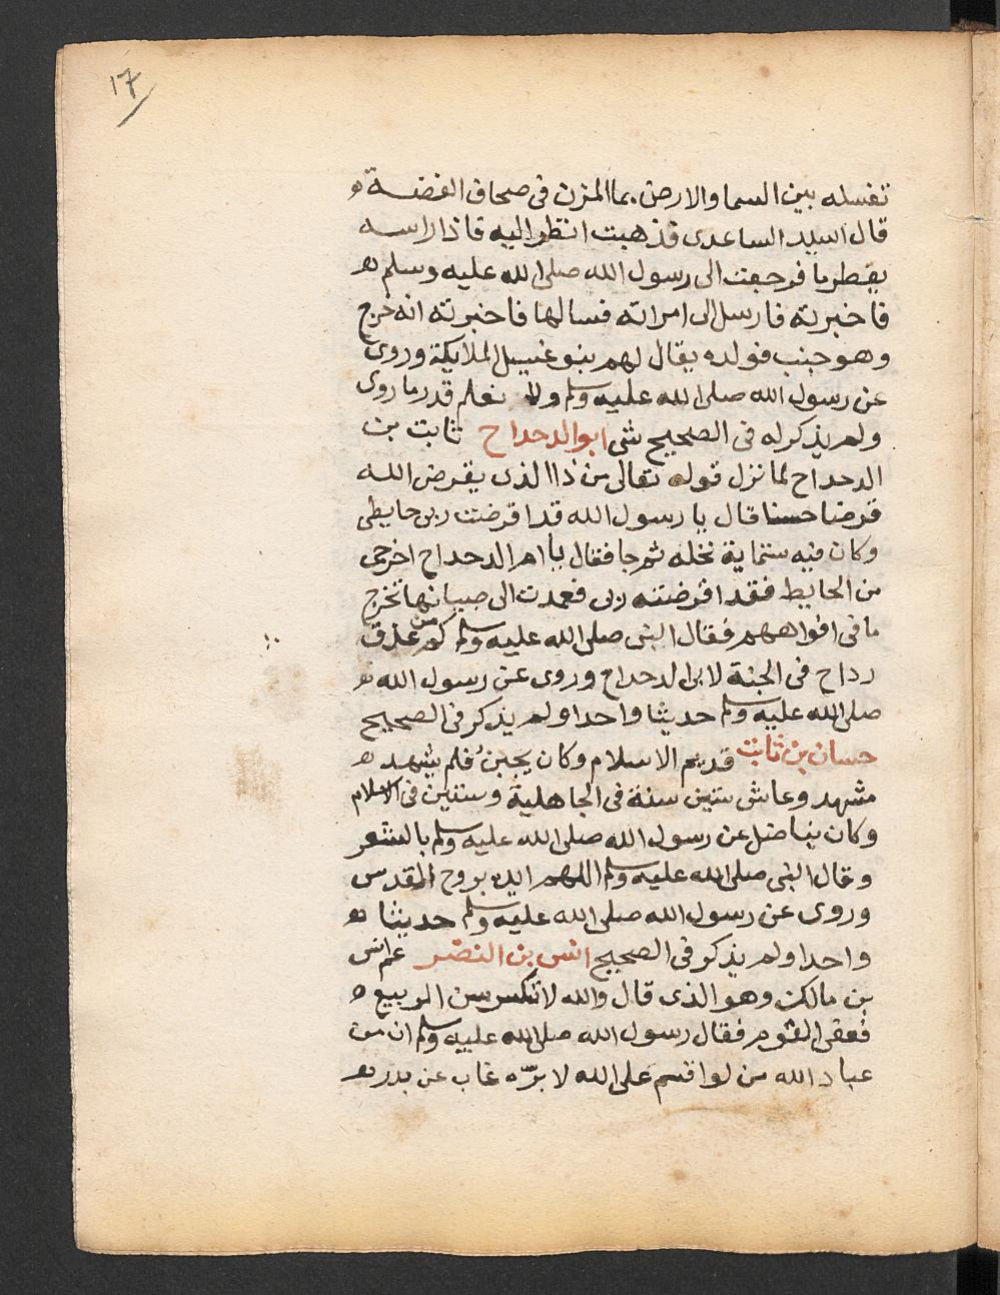 17
تغسله بين السما والارض بما المزن فى صحاف الفضة
قال اسيد الساعدى فذهبت انظر اليه فاذا راسه
يقطر ما فرجعت الى رسول الله صلى الله عليه وسلم
فاخبرته فارسل الى امراته فسالها فاخبرته انه خرج
وهو جنب فولده يقال لهم بنو غسيل الملايكة وروى
عن رسول الله صلى الله عليه وسلم ولا نعلم قدر ما روى
ولم يذكر له فى الصحيح شى ابو الدحداح ثابت بن
الدحداح لما نزل قوله تعالى من ذا الذى يقرض الله
قرضا حسنا قال يا رسول الله قد اقرضت ربى حايطى
وكان فيه ستماية نخله ثم جا فقال يا ام الدحداح اخرجى
من الحايط فقد اقرضته ربى فعمدت الى صبيانها تخرج
ما فى افواههم فقال النبى صلى الله عليه وسلم كم من عذق
رداح فى الجنة لابى الدحداح وروى عن رسول الله
صلى الله عليه وسلم حديثا واحدا ولم يذكر فى الصحيح
حسان بن ثابت قديم الاسلام وكان يجبن فلم يشهد
مشهد وعاش ستين سنة فى الجاهلية وستين فى الاسلام
وكان يناضل عن رسول الله صلى الله عليه وسلم بالشعر
وقال النبى صلى الله عليه وسلم اللهم ايده بروح القدس
وروى عن رسول الله صلى الله عليه وسلم حديثا
واحدا ولم يذكر فى الصحيح انس بن النضر عم انس
بن مالك وهو الذى قال والله لا تكسر سن الربيع
فعفى القوم فقال رسول الله صلى الله عليه وسلم ان من
عباد الله من لو اقسم على الله لابرّه غاب عن بدر